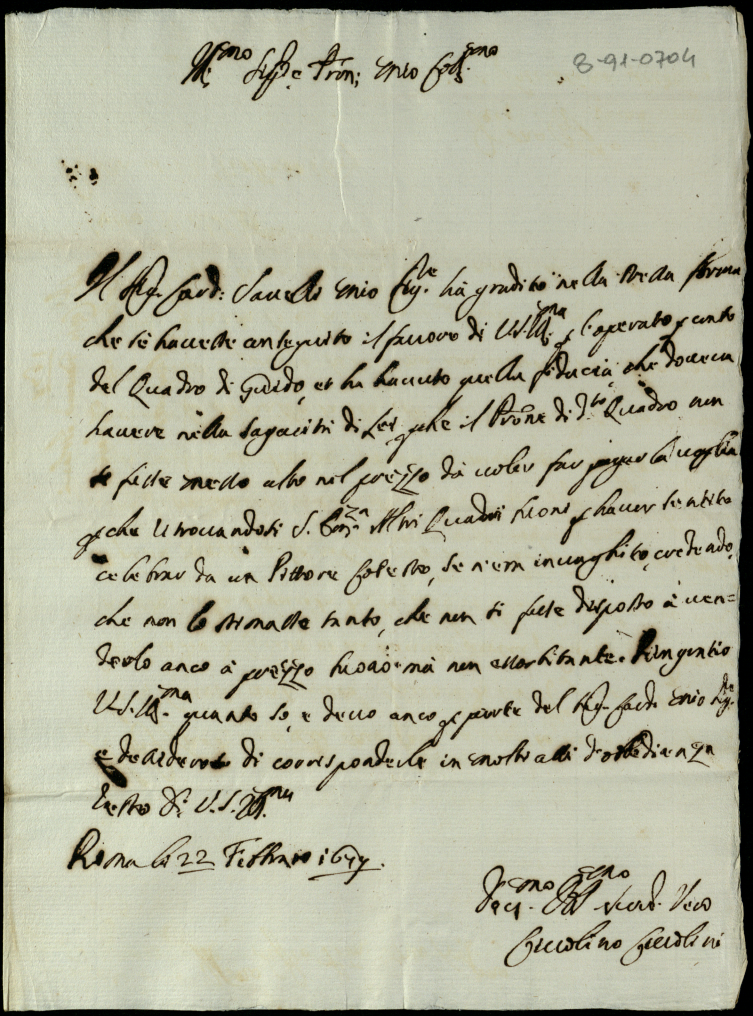 Ill.mo Sig.re e Pron; mio Coll.mo
8-91-0704
Il Sig. Card: Savelli mio Sig.re hà gradito nella stessa forma
che se havesse conseguito il favore di V.S. Ill.ma p l'operato p conto
del Quadro di Guido, et ha havuto quella fiducia, che doveva
havere nella sagacità di Lei, p che il Prone di d.to Quadro non
si fusse messo alto nel prezzo dà voler far pagar la voglia
p che ritrovandosi S. Em.za altri Quadri buoni p haver sentito
celebrar da un Pittore Celesto, se n'era invaghito, credendo,
che non lo stimasse tanto, che non si fusse disposto à ven=
derlo anco à prezzo buono mà non essorbitante. Ringratio
V.S. Ill.ma quanto sò, e devo anco p parte del Sig. Card. mio Sig.re
e desideroso di corrisponderle in molti atti d'obbedienza
resto Di V.S. Ill.ma
Roma li 22 Febbraro 1647.
Dev.mo Obl.mo Serv. Vero
Ceccolino Ceccolini